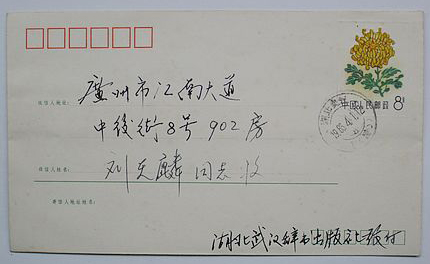 中国人民邮政
8分
收信人地址：
廣州市江南大道
中後街8号902房
收信人姓名：
刘天麟同志收
寄信人地址姓名：
湖北武汉辞书出版社